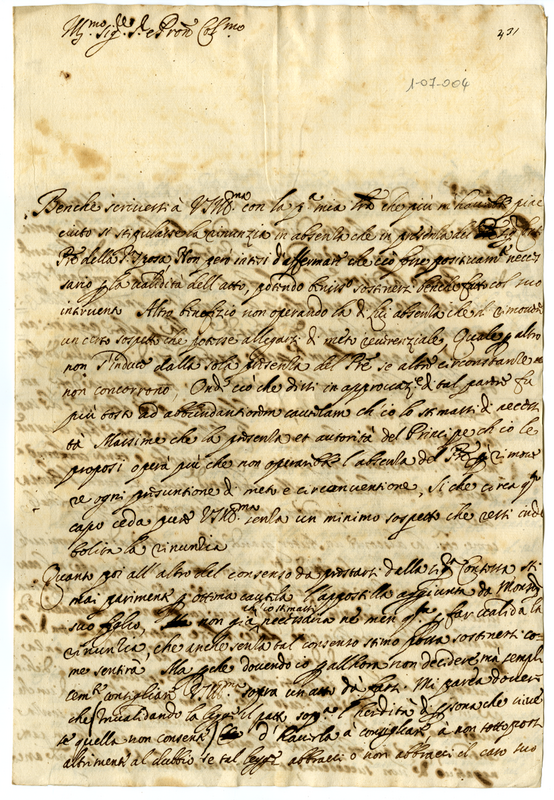 Ill.mo Sig.re S.r e Pron Col.mo
431
1-07-004
Benche scrivessi à VS Ill.ma con la p.a mia che più m'havrebbe piac
ciuto si stipulasse la rinunzia in absenza che in presenza del
Pre della Sposa Non però intesi d'affermare che ciò fosse positivam.te neces
sario p la validità dell'atto, potendo sostinersi benche fatto col suo
intervento Altro binefizio non operando la di lui absenza che il rimover
un certo sospetto che potesse allegarsi di meto reverenziale Quale p altro
non s'induce dalla sola presenza del Pre se altre circonstanze no
non concorrono, Onde ciò che dissi in approvaz.e di tal parere fu
più tosto ad abbundantiorem cautelam ch'io lo stimassi di necessi
tà Massime che la presenza et autorità del Principe ch'io le
proposi opera più che non operarebbe l'absenza del Pre p rimove
re ogni presuntione di meto e circonventione, Si che circa q.to
capo ceda pure VS Ill.ma senza un minimo sospetto che resti inde
bolita la rinuncia
Quanto poi all'altro del consenso da prestarsi dalla Sig.ra Contessa sti
mai pariment p ottima cautela l'apostilla aggiunta da Mons.r
suo figlio, non già ch'io stimassi necessaria ne men q.ta p far valida la
rinunzia, che anche senza tal consenso stimo possa sostinersi co
me sentirà Ma p che dovendo io p all'hora non decidere mà sempli
cem.te consigliare VS Ill.ma sopra un atto da farsi Mi parea dovere
che invalidando la legge il patto sop.a l'heredità di p.sona che vive
se quella non consente d'haverla à consigliare à non sottoporsi
altrimenti al dubbio se tal legge abbracci o non abbracci il caso suo